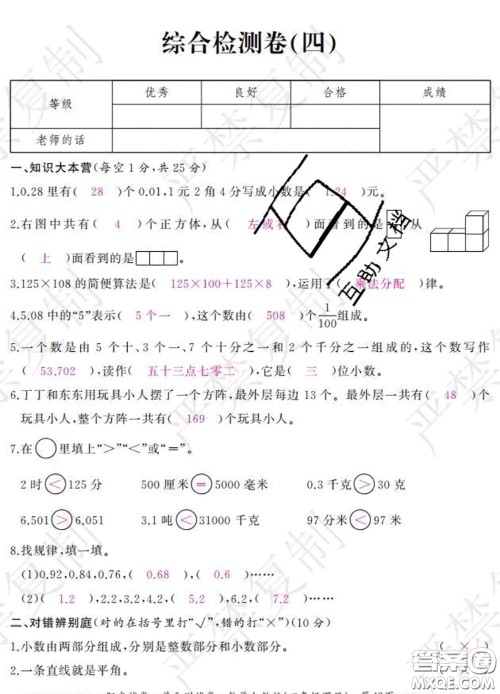 综合检测卷(四)
等级 优秀 良好 合格 成绩
老师的话
一、知识大本营(每空1分,共25分)
1.0.28里有( 28 )个0.01,1元2角4分写成小数是( 1.24 )元。
2.右图中共有( 4 )个正方体,从( 左或右 )面看到的是 从
( 上 )面看到的是
3.125×108的简便算法是( 125×100+125×8 ),运用了( 乘法分配 )律。
4.5.08中的“5”表示( 5个一 ),这个数由( 508 )个1/100组成。
5.一个数是由5个十、3个一、7个十分之一和2个千分之一组成的,这个数写作
( 53.702 ),读作( 五十三点七零二 ),它是( 三 )位小数。
6.丁丁和东东用玩具小人摆了一个方阵,最外层每边13个。最外层一共有( 48 )个
玩具小人,整个方阵一共有( 169 )个玩具小人。
7.在○里填上“>”“<”或“=”。
2时<125分 500厘米=5000毫米 0.3千克>30克
6.501>6.051 3.1吨<31000千克 97平方分米<97平方米
8.找规律,填一填。
(1)0.92,0.84,0.76,( 0.68 ),( 0.6 )……
(2)( 1.2 ),2.2,3.2,4.2,( 5.2 ),( 6.2 ),7.2……
二、对错辨别庭(对的在括号里打“√”,错的打“×”)(10分)
1.小数由两部分组成,分别是整数部分和小数部分。 ( × )
2.一条直线就是平角。
严禁复制
互助文档
答案圈
MXQE.COM